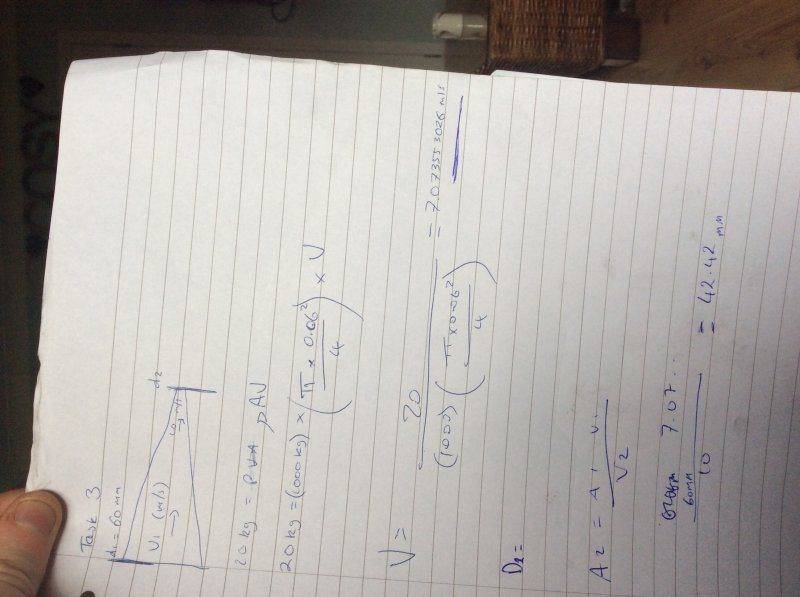 Task 3
d₁ = 60mm
d₂
V₁ (m/s)
→
10 m/s
→
20 kg = ρAV
20 kg = (1000 kg) × (π × 0.06² / 4) × V
V = 20 / (1000) (π × 0.06² / 4) = 7.073553026 m/s
D₂ =
A₂ = A₁ V₁ / V₂
60mm 7.07... / 10 = 42.42 mm
COSY